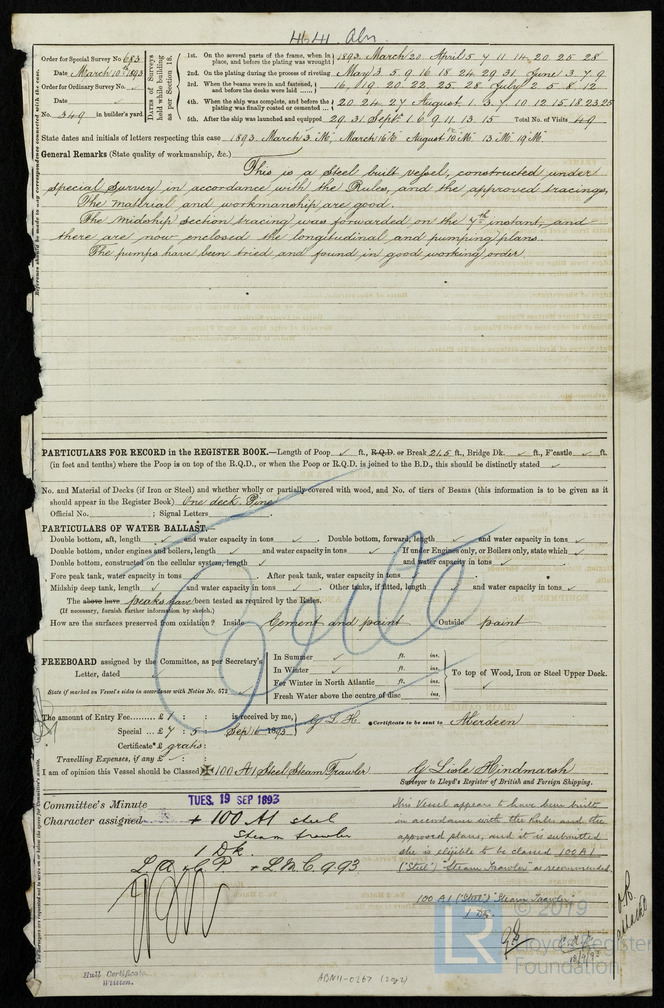 44 Abn
Order for Special Survey No. 683
Date March 10th 1893
Order for Ordinary Survey No. ✓
Date ✓
No. 349 in builder's yard.
DATES of Surveys held while building as per Section 18.
1st. On the several parts of the frame, when in place, and before the plating was wrought 1893 March 20 April 5 7 11 14 20 25 28
2nd. On the plating during the process of riveting May 3 5 9 16 18 24 29 31 June 1 3 7 9
3rd. When the beams were in and fastened, and before the decks were laid 16 19 20 22 25 28 July 2 5 8 12
4th. When the ship was complete, and before the plating was finally coated or cemented 20 24 27 August 1 3 7 10 12 15 18 23 25
5th. After the ship was launched and equipped 29 31 Sept 1 6 9 11 13 15 Total No. of Visits 49
State dates and initials of letters respecting this case 1893 March 3 M, March 16 August 10 M 13 M 19 M
General Remarks (State quality of workmanship, &c.)
This is a steel built vessel, constructed under
special survey in accordance with the Rules, and the approved tracings,
The material and workmanship are good.
The midship section tracing was forwarded on the 7th instant, and
there are now enclosed the longitudinal and pumping plans.
The pumps have been tried and found in good working order.
PARTICULARS FOR RECORD in the REGISTER BOOK.—Length of Poop ✓ ft., R.Q.D. or Break 21.5 ft., Bridge Dk. ✓ ft., F'castle ✓ ft.
(in feet and tenths) where the Poop is on top of the R.Q.D., or when the Poop or R.Q.D. is joined to the B.D., this should be distinctly stated ✓
No. and Material of Decks (if Iron or Steel) and whether wholly or partially covered with wood, and No. of tiers of Beams (this information is to be given as it
should appear in the Register Book) One deck Pine
Official No. ; Signal Letters
PARTICULARS OF WATER BALLAST.—
Double bottom, aft, length ✓ and water capacity in tons ✓ . Double bottom, forward, length ✓ and water capacity in tons ✓
Double bottom, under engines and boilers, length ✓ and water capacity ✓ If under Engines only, or Boilers only, state which ✓
Double bottom, constructed on the cellular system, length ✓ and water capacity in tons ✓
Fore peak tank, water capacity in tons . After peak tank, water capacity in tons
Midship deep tank, length ✓ and water capacity in tons . Other tanks, if fitted, length ✓ and water capacity in tons ✓
The above have peaks have been tested as required by the Rules.
(If necessary, furnish further information by sketch.)
How are the surfaces preserved from oxidation? Inside Cement and paint Outside paint
FREEBOARD assigned by the Committee, as per Secretary's
Letter, dated
State if marked on Vessel's sides in accordance with Notice No. 572
In Summer ✓ ft. ins.
In Winter ✓ ft. ins.
For Winter in North Atlantic ft. ins.
Fresh Water above the centre of disc ft. ins.
To top of Wood, Iron or Steel Upper Deck.
The amount of Entry Fee £1 : : is received by me, G L H
Special £7 : 5 : Sep 16 1893
Certificate £ gratis :
Certificate to be sent to Aberdeen
Travelling Expenses, if any £
I am of opinion this Vessel should be Classed ✠ 100 A1 Steel Steam Trawler
G Lisle Hindmarsh
Surveyor to Lloyd's Register of British and Foreign Shipping.
Committee's Minute TUES. 19 SEP 1893
Character assigned + 100 A1 steel
Steam trawler
1 Dk.
L.A. & C.P. + L.M.C. 9.93
This Vessel appears to have been built
in accordance with the Rules and the
approved plans, and it is submitted
she is eligible to be classed 100 A1
("Steel") "Steam Trawler" as recommended.
100 A1 ("Steel") "Steam Trawler"
1 Dk.
Hull Certificate
Written.
ABN11-0267 (2 of 2)
LR © 2019
Lloyd's Register
Foundation